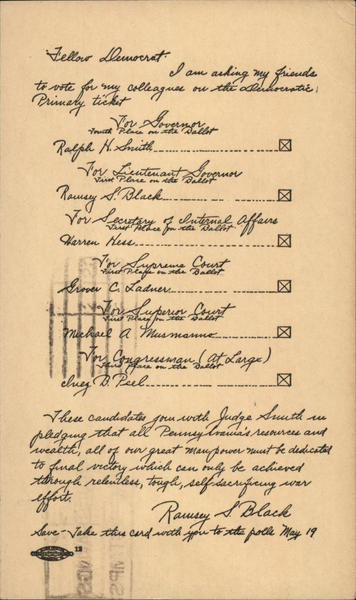 Fellow Democrat:
I am asking my friends
to vote for my colleagues on the Democratic
Primary ticket
For Governor
Fourth Place on the Ballot
Ralph H. Smith
For Lieutenant Governor
First Place on the Ballot
Ramsey S. Black
For Secretary of Internal Affairs
First Place on the Ballot
Warren Hess
For Supreme Court
First Place on the Ballot
Grover C. Ladner
For Superior Court
First Place on the Ballot
Michael A. Musmanno
For Congressman (At Large)
Place on the Ballot
Inez B. Peel
These candidates join with Judge Smith in
pledging that all Pennsylvania's resources and
wealth, all of our great manpower must be dedicated
to final victory which can only be achieved
through relentless, tough, self-sacrificing war
effort.
Ramsey S. Black
Save - Take this card with you to the polls May 19
12